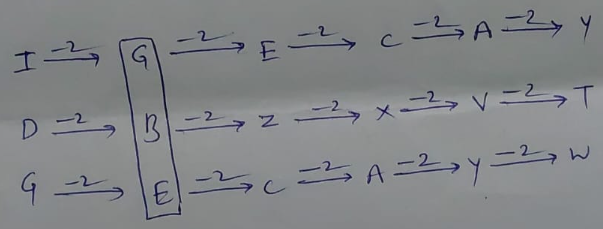 I -2→ G -2→ E -2→ C -2→ A -2→ Y
D -2→ B -2→ Z -2→ X -2→ V -2→ T
G -2→ E -2→ C -2→ A -2→ Y -2→ W